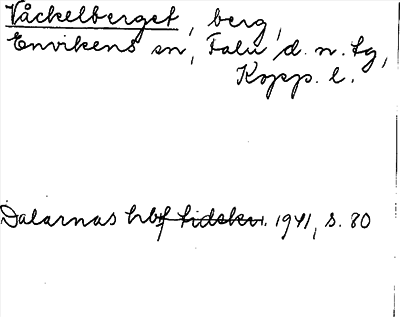 Våckelberget, berg,
Envikens sn, Falu d. n. tg,
Kopp. l.
Dalarnas hbf tidskr. 1941, s. 80